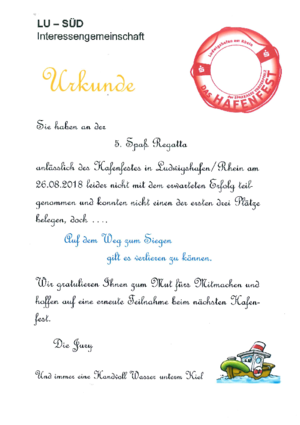 LU – SÜD
Interessengemeinschaft
Ludwigshafen am Rhein
DAS HAFENFEST
Urkunde
Sie haben an der
5. Spaß Regatta
anlässlich des Hafenfestes in Ludwigshafen/Rhein am
26.08.2018 leider nicht mit dem erwarteten Erfolg teil-
genommen und konnten nicht einen der ersten drei Plätze
belegen, doch ....
Auf dem Weg zum Siegen
gilt es verlieren zu können.
Wir gratulieren Ihnen zum Mut fürs Mitmachen und
hoffen auf eine erneute Teilnahme beim nächsten Hafen-
fest.
Die Jury
Und immer eine Handvoll Wasser unterm Kiel